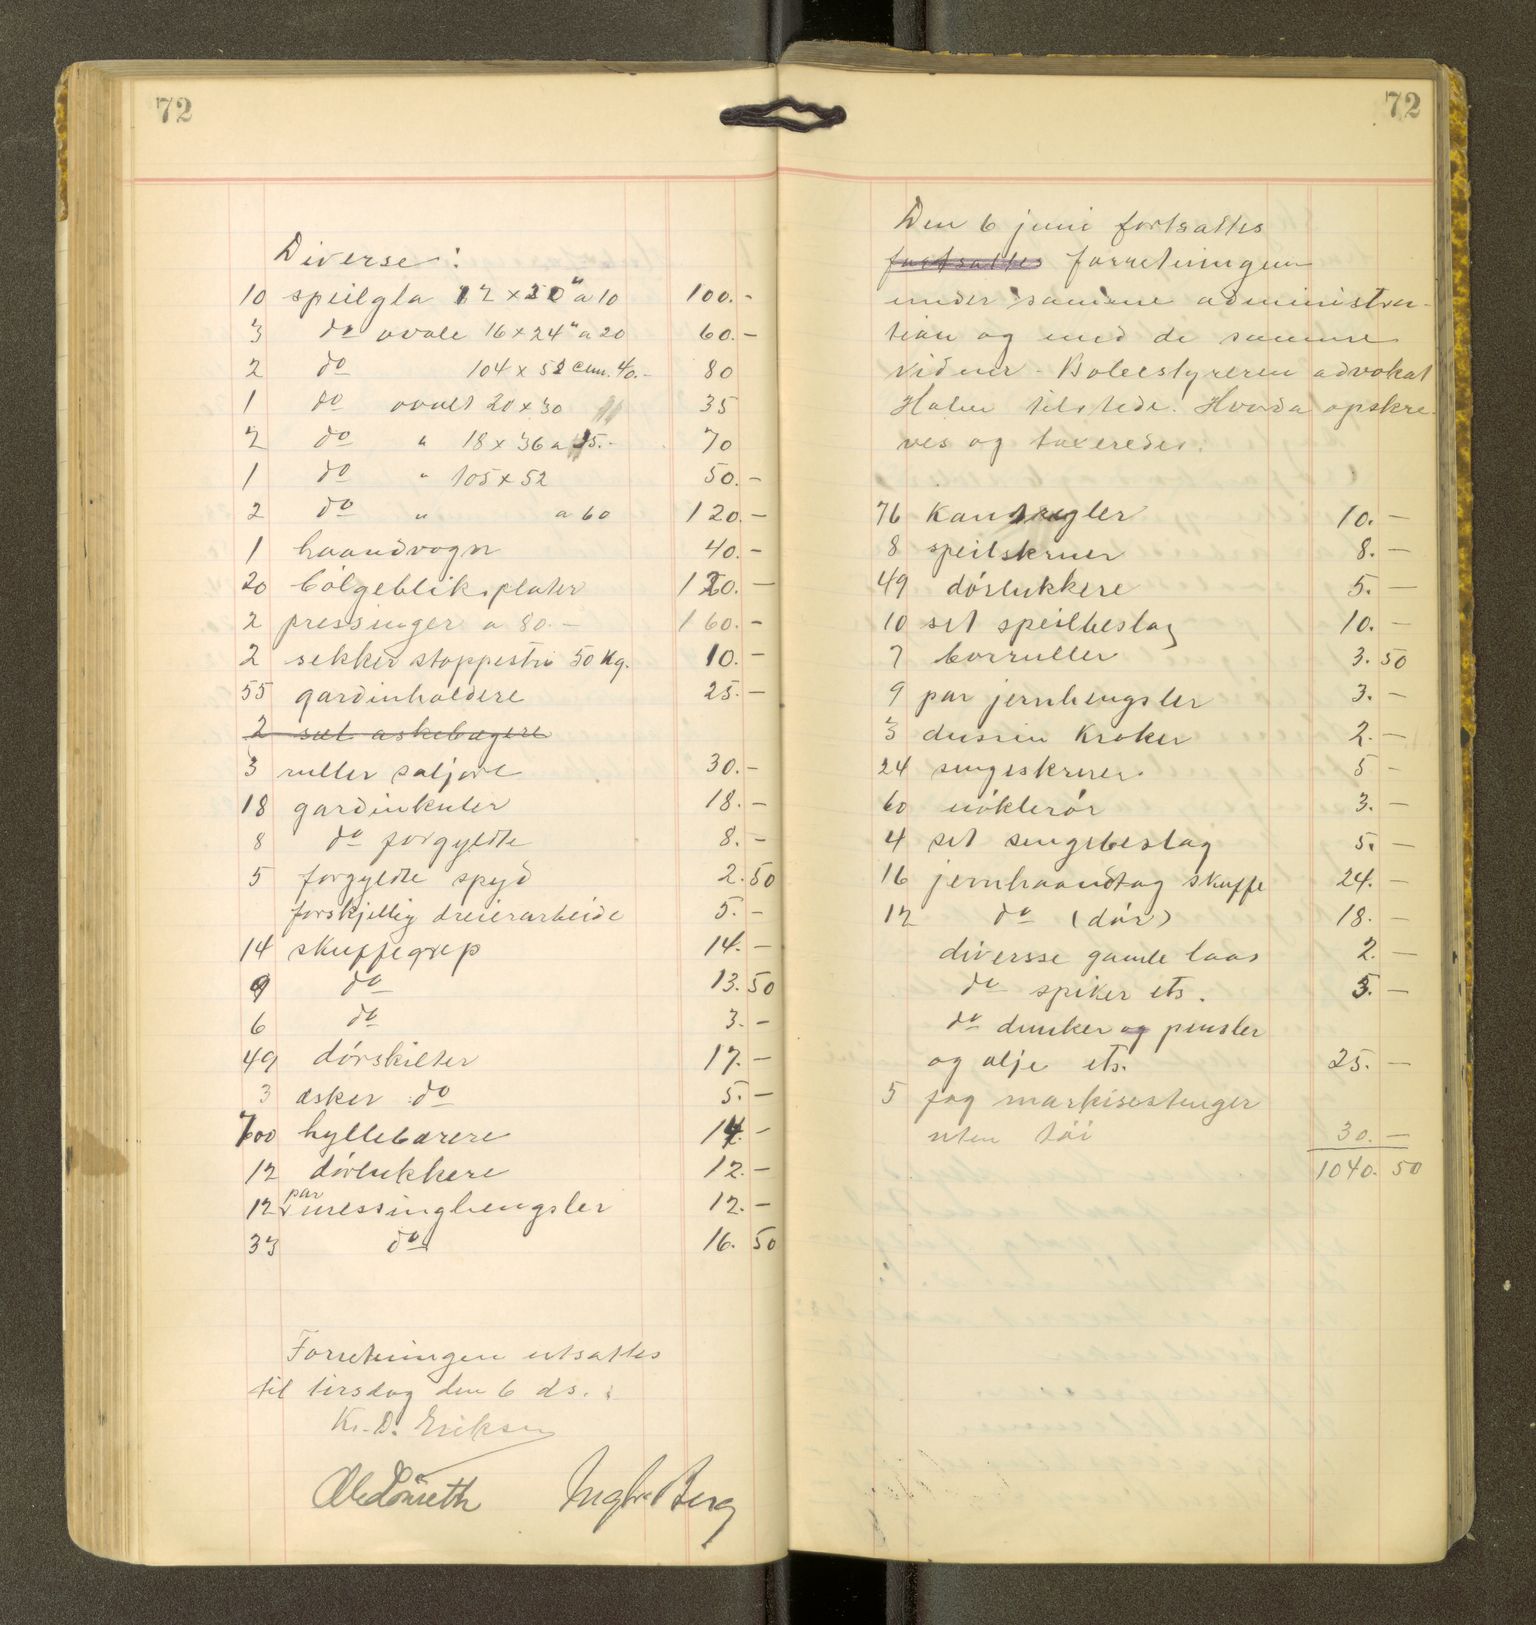 72
Diverse:
10 speilgla 12 x 20" a 10 100.-
3 do ovale 16 x 24" a 20 60.-
2 do 104 x 52 cm. 40.- 80
1 do ovalt 20 x 30 35
2 do " 18 x 36 a 35.- 70
1 do " 105 x 52 50.-
2 do " a 60 120.-
1 haandvogn 40.-
20 bölgeblikplater 120.-
2 pressinger a 80.- 160.-
2 sekker stoppestri 50 Kg. 10.-
55 gardinholdere 25.-
2 sæt askebægere
3 ruller 30.-
18 gardinkuler 18.-
8 do forgyldte 8.-
5 forgyldte spyd 2.50
forskjellig dreierarbeide 5.-
14 skuffegrep 14.-
9 do 13.50
6 do 3.-
49 dörskilter 17.-
3 æsker do 5.-
700 hyllebærere 14.-
12 dörlukkere 12.-
12 par messinghengsler 12.-
33 do 16.50
Forretningen utsattes
til tirsdag den 6 ds.
Kr. D. Eriksen
Ingv. Berg
72
Den 6 juni fortsattes
fortsattes forretningen
under samme administra-
tion og med de samme
vidner - Bobestyreren advokat
Holm tilstede. Hvorda opskre-
ves og taxeredes:
76 10.-
8 speilskruer 8.-
49 dörlukkere 5.-
10 set speilbeslag 10.-
7 borruller 3.50
9 par jernhengsler 3.-
3 dussin Kroker 2.-
24 sengeskruer 5-
60 nöklerör 3.-
4 set sengebeslag 5.-
16 jernhaandtag skuffe 24.-
12 do (dör) 18.-
diversse gamle laas 2.-
do spiker ets. 5.-
do dunker og pensler
og olje ets. 25.-
5 fag markisestenger
uten töi 30.-
1040.50